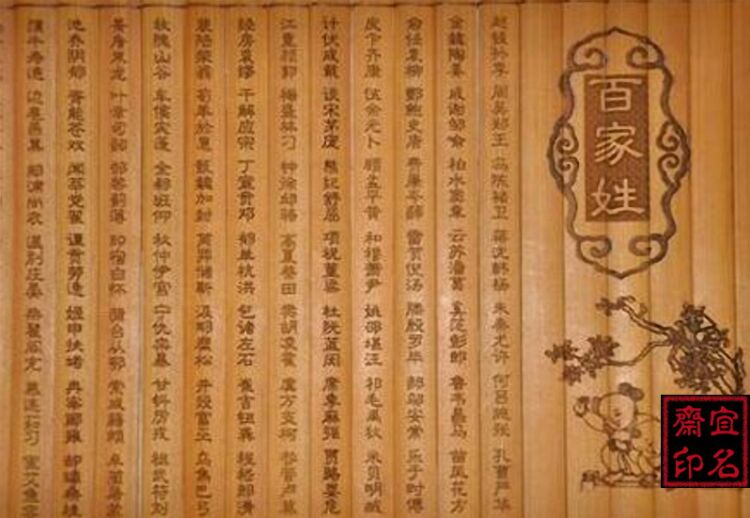 百家姓
赵钱孙李 周吴郑王 冯陈褚卫 蒋沈韩杨 朱秦尤许 何吕施张 孔曹严华
金魏陶姜 戚谢邹喻 柏水窦章 云苏潘葛 奚范彭郎 鲁韦昌马 苗凤花方
俞任袁柳 酆鲍史唐 费廉岑薛 雷贺倪汤 滕殷罗毕 郝邬安常 乐于时傅
皮卞齐康 伍余元卜 顾孟平黄 和穆萧尹 姚邵堪汪 祁毛禹狄 米贝明臧
计伏成戴 谈宋茅庞 熊纪舒屈 项祝董梁 杜阮蓝闵 席季麻强 贾路娄危
江童颜郭 梅盛林刁 钟徐邱骆 高夏蔡田 樊胡凌霍 虞万支柯 昝管卢莫
经房裘缪 干解应宗 丁宣贲邓 郁单杭洪 包诸左石 崔吉钮龚 程嵇邢滑
裴陆荣翁 荀羊於惠 甄麴加封 芮羿储靳 汲邴糜松 井段富巫 乌焦巴弓
牧隗山谷 车侯宓蓬 全郗班仰 秋仲伊宫 宁仇栾暴 甘钭厉戎 祖武符刘
景詹束龙 叶幸司韶 郜黎蓟薄 印宿白怀 蒲台从鄂 索咸籍赖 卓蔺屠蒙
池乔阴郁 胥能苍双 闻莘党翟 谭贡劳逄 姬申扶堵 冉宰郦雍 郤璩桑桂
濮牛寿通 边扈燕冀 郏浦尚农 温别庄晏 柴瞿阎充 慕连茹习 宦艾鱼容
宜名齋印